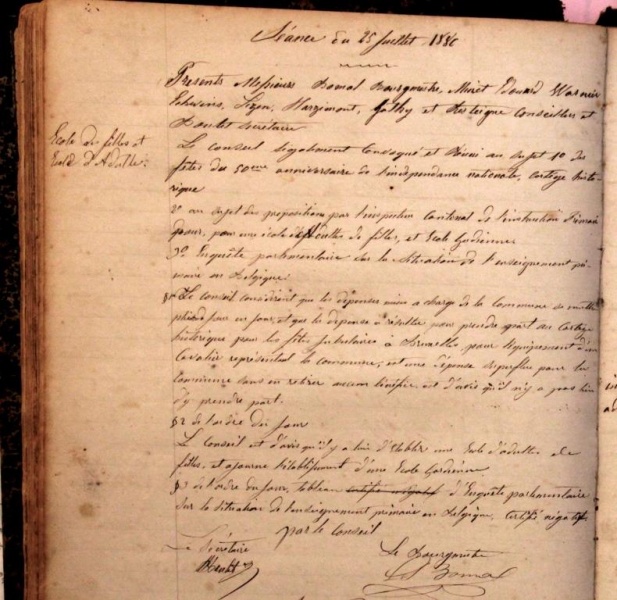 Séance du 25 Juillet 1880
Présents Messieurs Domal Bourgmestre, Minet Edouard Warnier
Lizen, Harzimont, Gathy et Desteigne conseillers et
Secrétaire
Ecole de filles et
Ecole d'Adultes.
Le conseil légalement Convoqué et Réuni au sujet 1º des
fêtes du 50eme anniversaire de l'indépendance nationale, cortège histo-
rique
2º au sujet des propositions par l'inspecteur Cantonal de l'instruction
pour une école d'adultes de filles, et Ecole Gardienne
3º Enquête parlementaire sur la situation de l'enseignement pri-
maire en Belgique.
Le conseil considérant que les dépenses mises à charge de la Commune se multi-
plient jour en jour, et que la dépense à résulter pour prendre part au Cortège
historique pour les fêtes jubilaires à Bruxelles pour l'équipement d'un
Cavalier représentant la commune, est une dépense superflue pour la
Commune sans en retirer aucun bénéfice est d'avis qu'il n'y a pas lieu
d'y prendre part.
§2 de l'ordre du jour
Le Conseil est d'avis qu'il y a lieu d'établir une Ecole d'adultes de
filles, et ajourne l'établissement d'une Ecole Gardienne
§3 de l'ordre du jour, tableau certifié négatif d'Enquête parlementaire
sur la situation de l'enseignement primaire en Belgique, certifié négatif
par le Conseil
Le Secrétaire
Le Bourgmestre
Domal